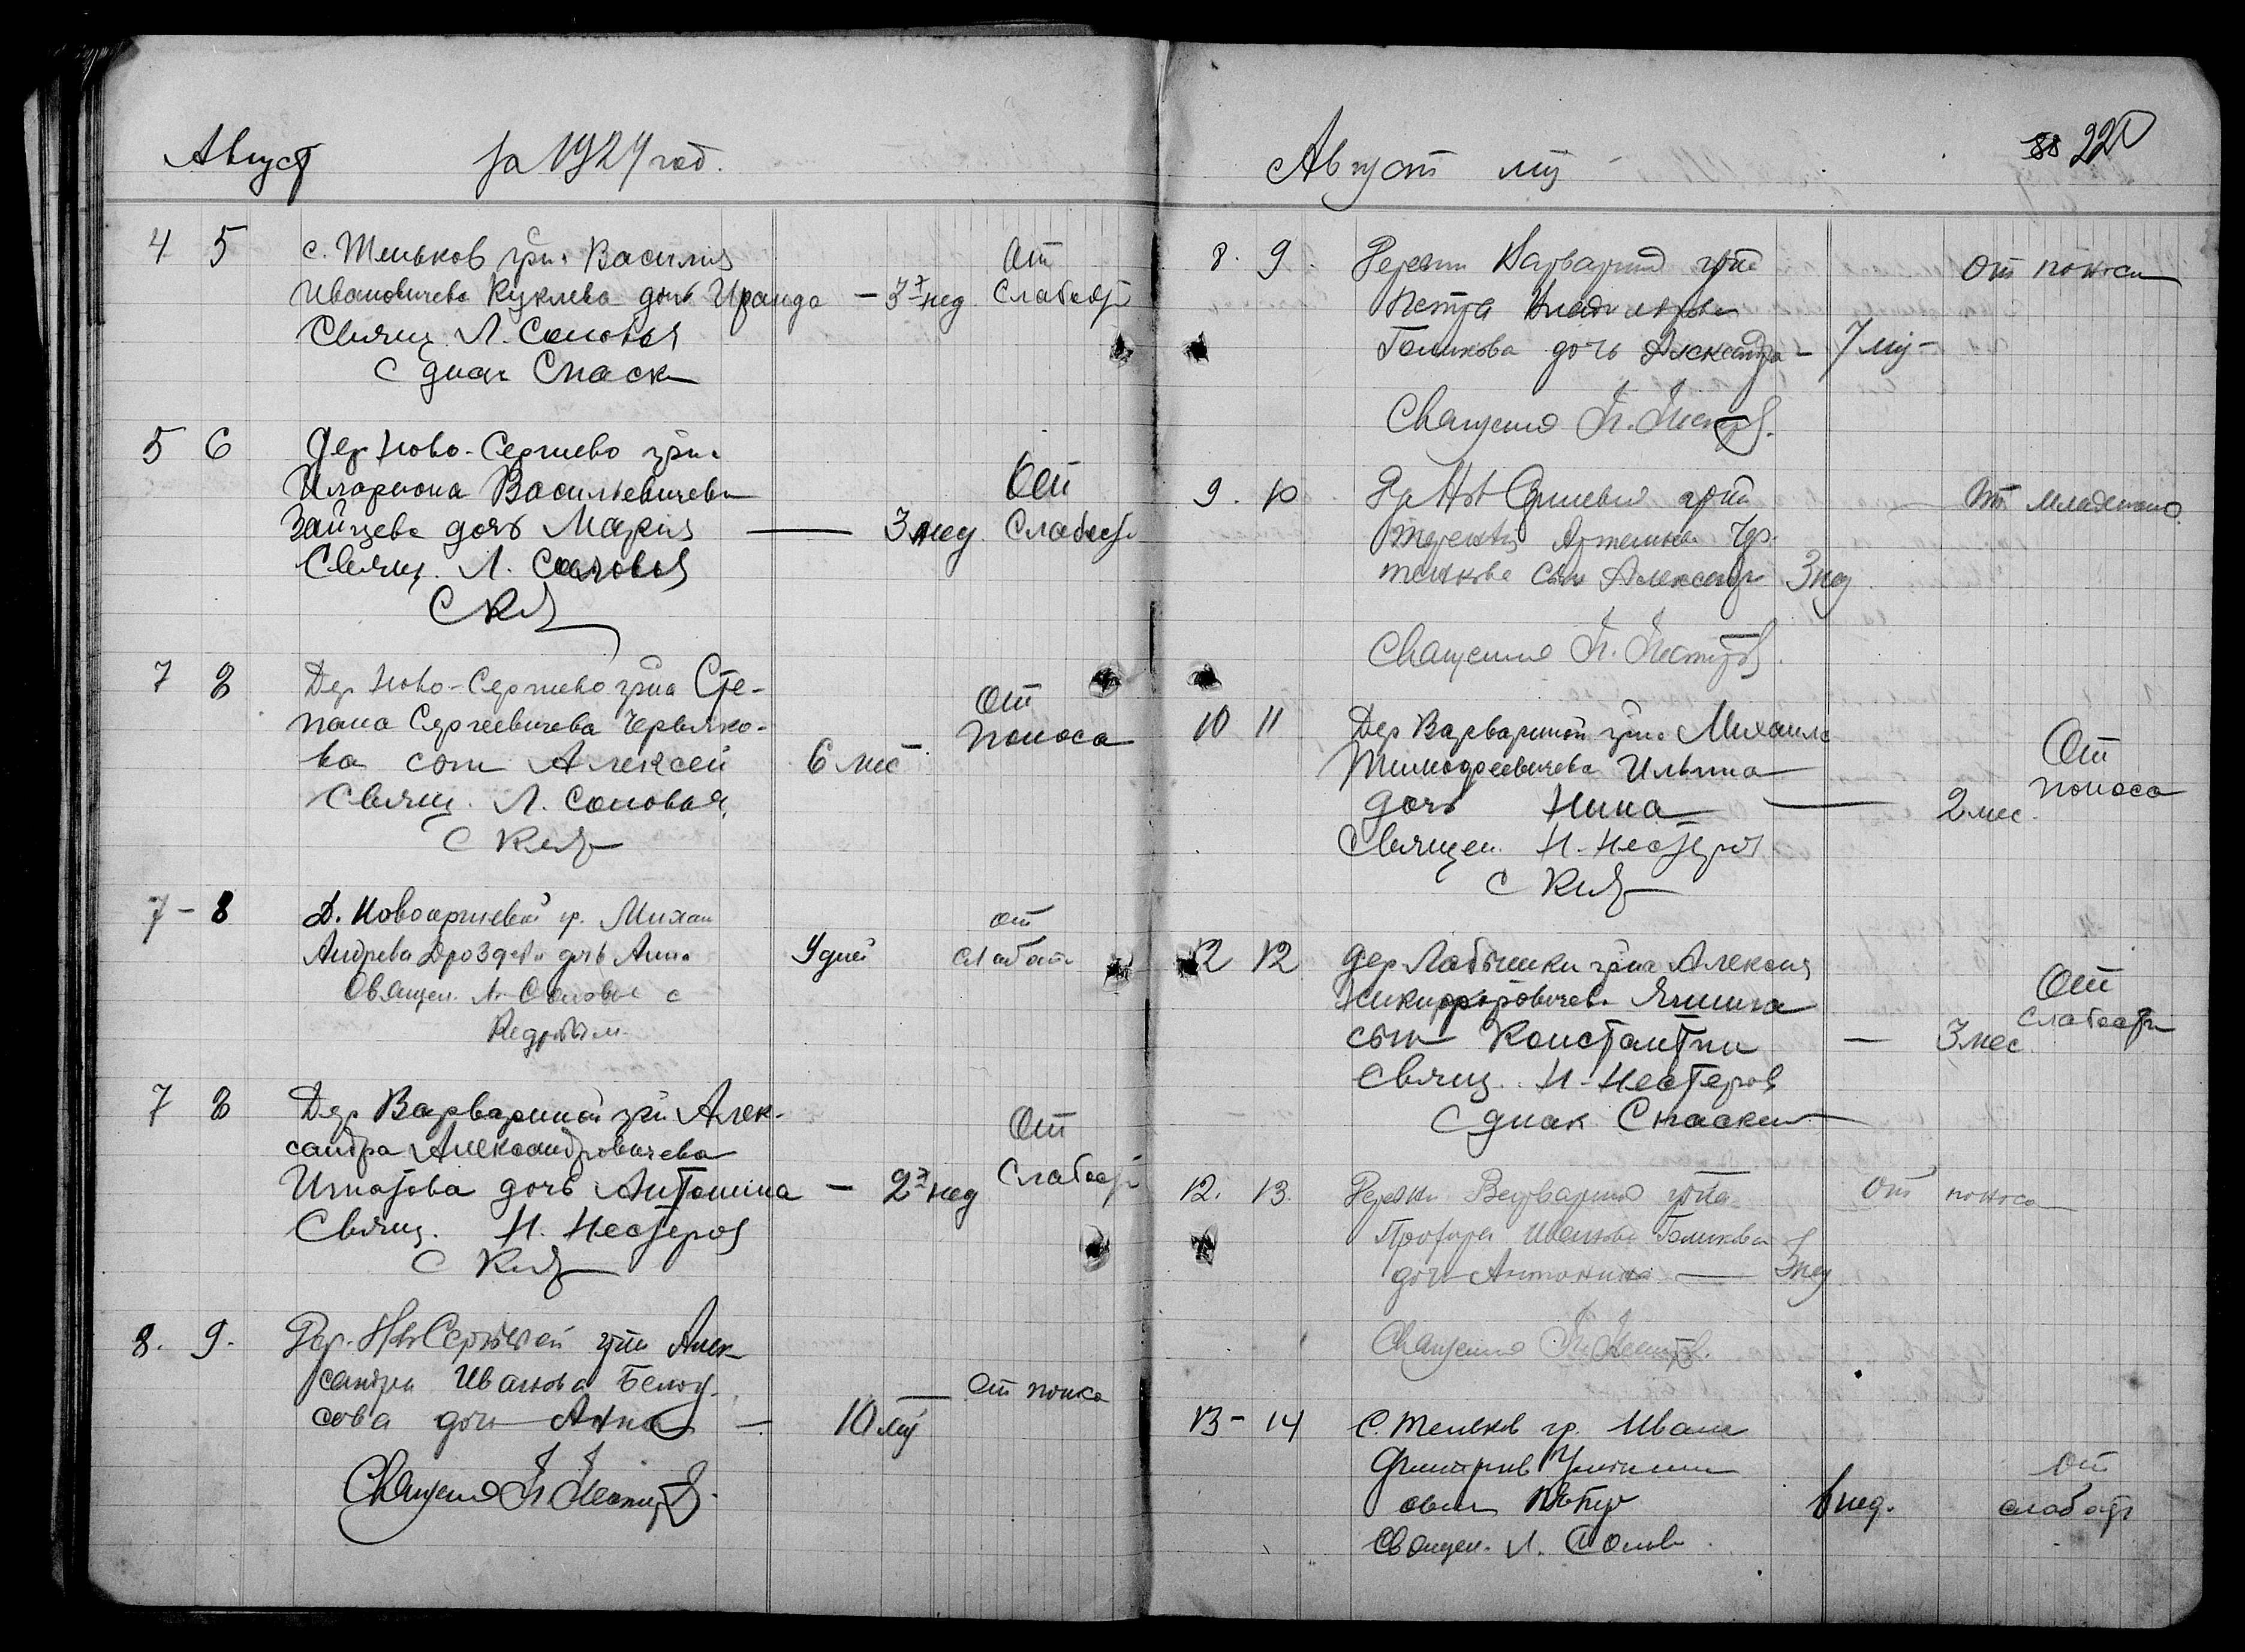 Август за 1924 год.
4 5 с. Теньков гр-на Василия
Ивановичева Куклева дочь Ираида — 3х нед От Слабости
Свящ. Л. Соловья
С диак Спаск
5 6 Дер Ново-Сергиево гр-на
Илариона Васильевичева
Зайцева дочь Мария — 3 нед От Слабости
Свящ. Л. Соловья
С
7 8 Дер Ново-Сергиево гр-на Сте-
пана Сергеевичева Червяко-
ва сын Алексей 6 мес От поноса
Свящ. Л. Соловья
С
7 - 8 Д. Новосергиевой гр. Михаи
Андрева Дроздова дочь Анна 9 дней от слабости
Священ. Л. Соловье с
Кедровым
7 8 Дер Варвариной гр-н Алек-
сандра Александровичева
Игнатова дочь Антонина — 2х нед От Слабост
Свящ. Н. Нестеров
С
8. 9. Дер. Нов Сергиевой гр-на Алек-
сандра Иванова Белоу-
сова дочь Анна — 10 мц От поноса
Священно Н. Нестеров.
Август мц
88 220
8. 9. Деревни Варварино гр-на
Петра
Голикова дочь Александра — 7 мц — От поноса
Священно Н. Нестеров.
9. 10 Нов Сергиево гр-на
Терентия Артемьева Чер-
сын Александр 3 нед От младенчес
Священно Н. Нестеров.
10 11 Дер Варвариной гр-на Михаила
Тимофеевичева Ильина
дочь Нина — 2 мес. От поноса
Священ. Н. Нестеров
С
12 12 дер Лабышки гр-на Алексия
Никифоровичева Яшина
сын Константин — 3 мес От слабости
Свящ. Н. Нестеров
С диак Спаским
12. 13. Деревни Варварино гр-на
Иванова Голикова
дочь Антонина — 3 нед От поноса
Священно Н. Нестеров.
13 - 14 С. Теньков гр. Иван
Дмитриев
сын Петр нед. От слабости
Священ. Л. Солов